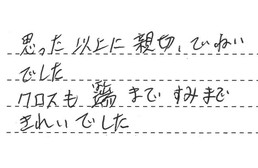 思った以上に親切、ていねい
でした
クロスも端まですみまで
きれいでした